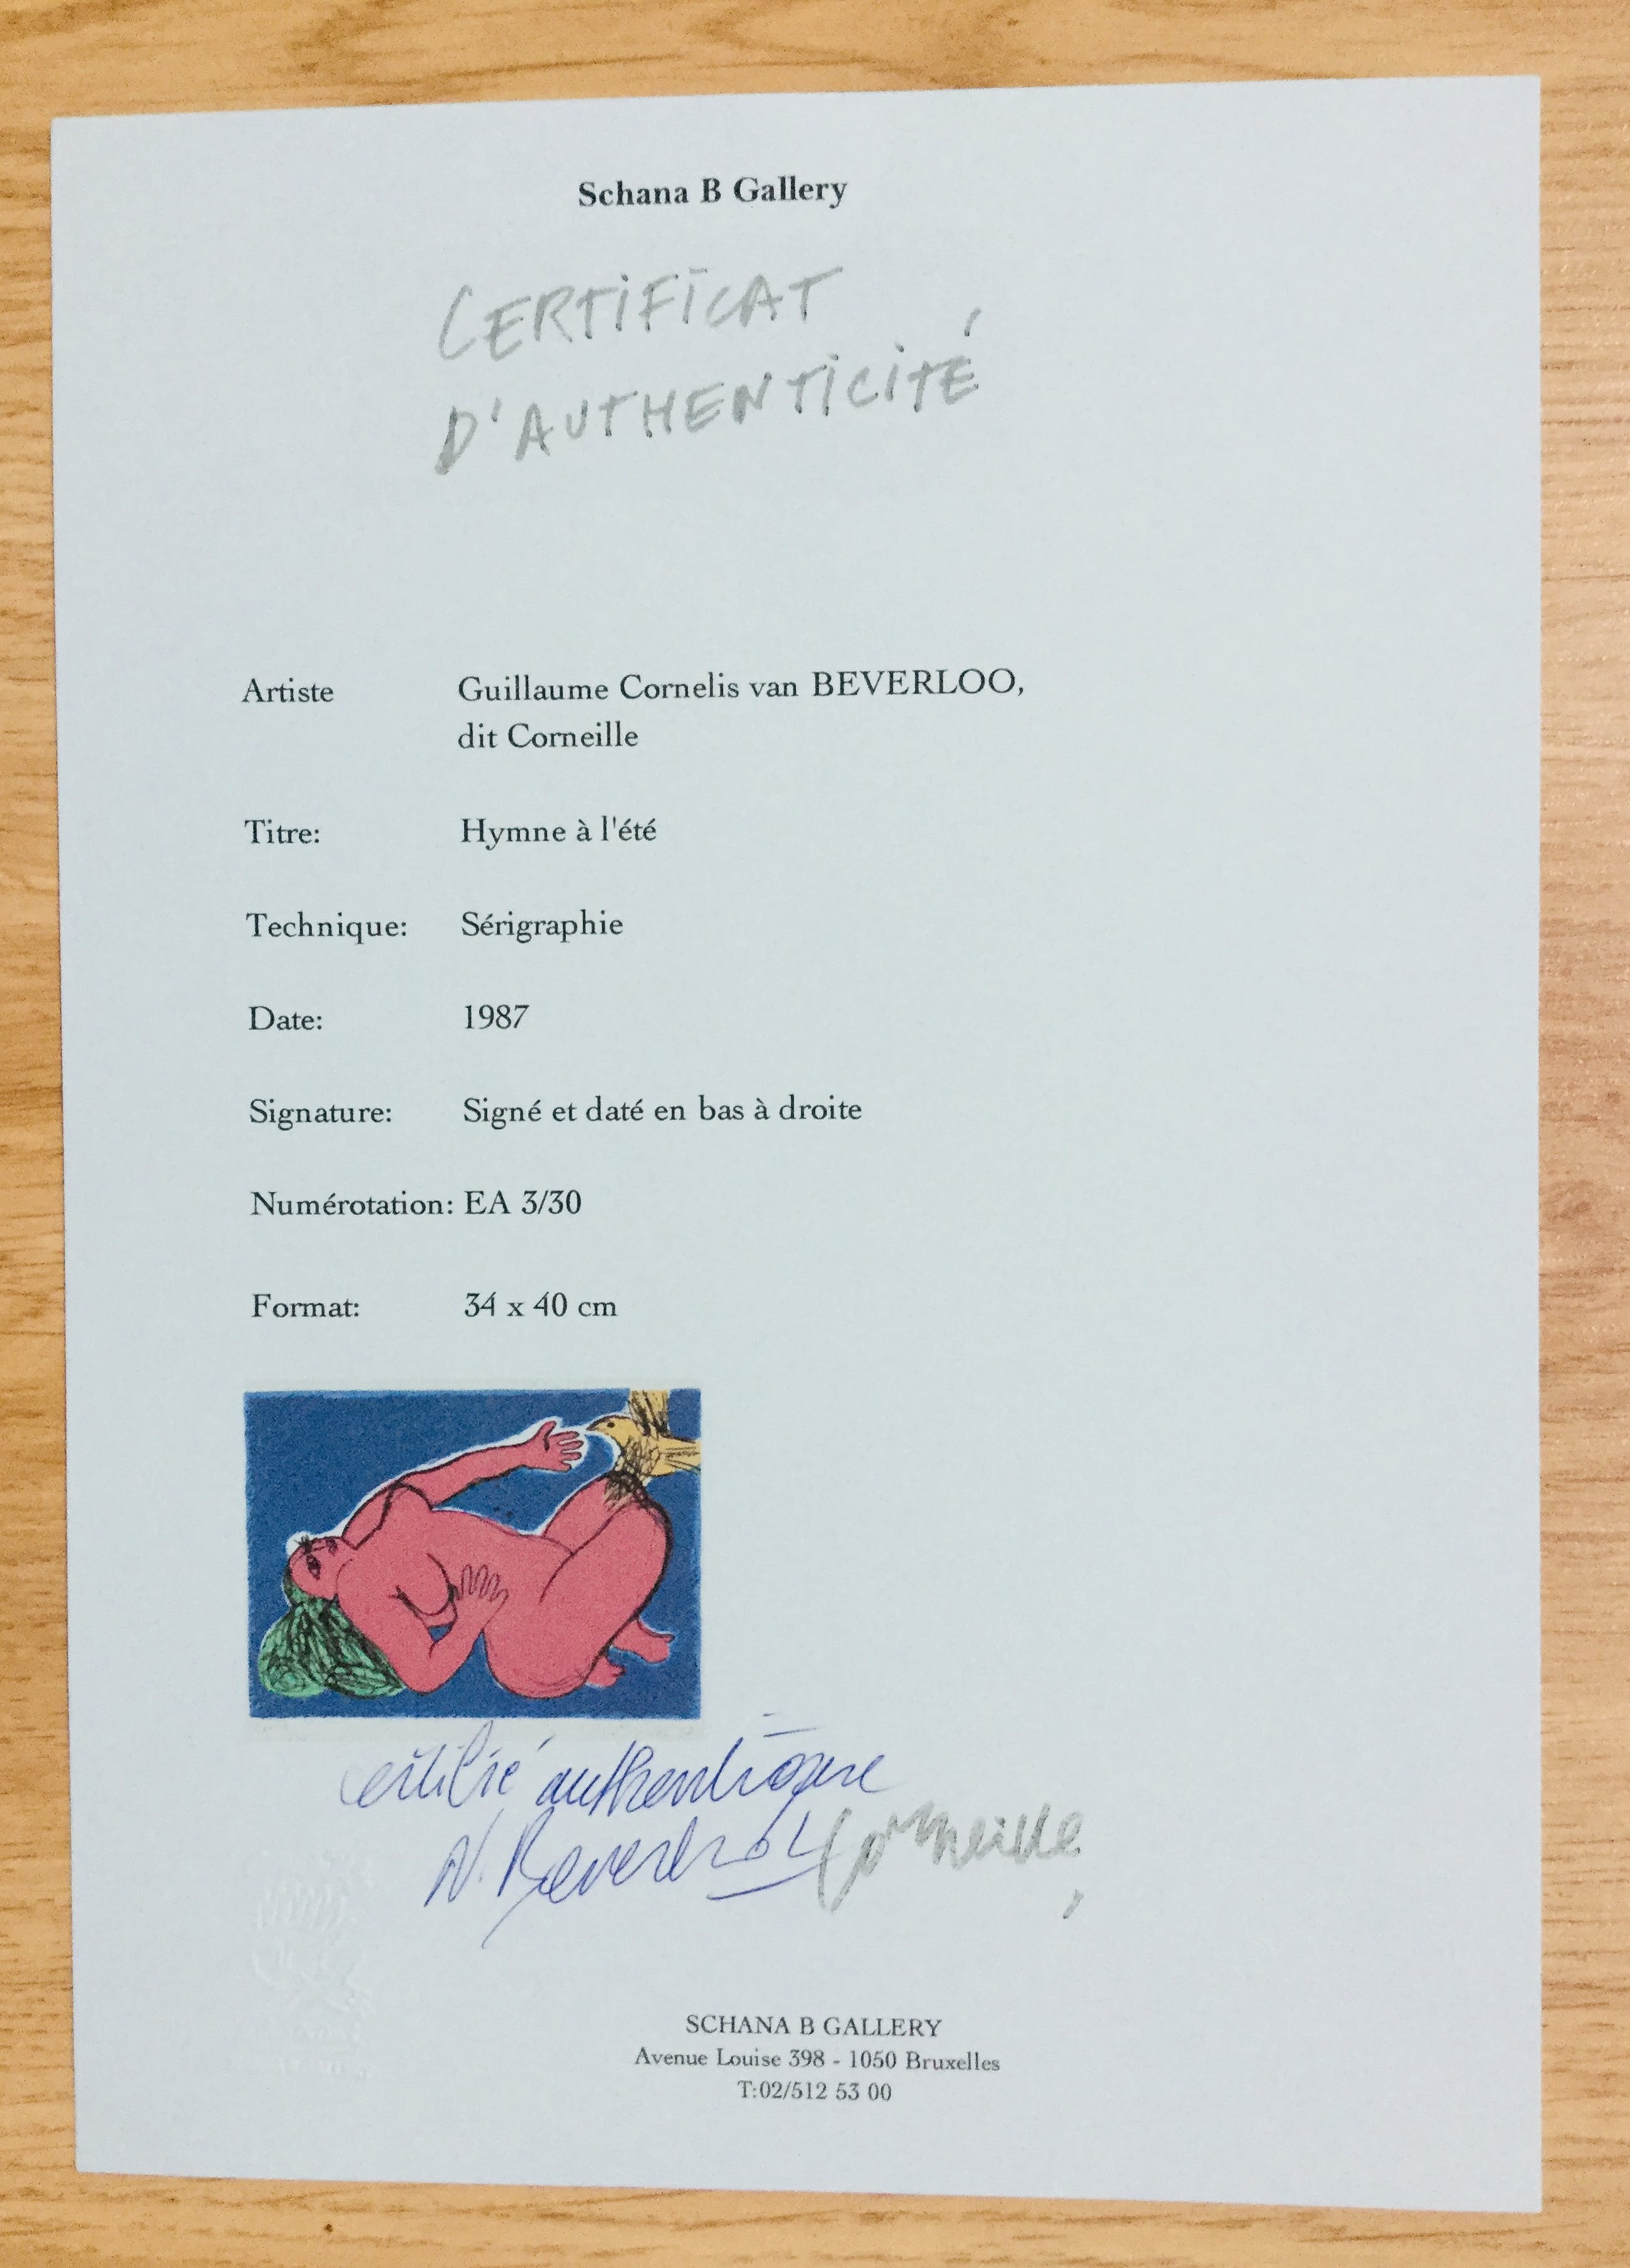 Schana B Gallery
CERTiFiCAT
D'AUTHENTiCiTÉ
Artiste Guillaume Cornelis van BEVERLOO,
dit Corneille
Titre: Hymne à l'été
Technique: Sérigraphie
Date: 1987
Signature: Signé et daté en bas à droite
Numérotation: EA 3/30
Format: 34 x 40 cm
certifié authentique
N. Beverloo Corneille
SCHANA B GALLERY
Avenue Louise 398 - 1050 Bruxelles
T:02/512 53 00